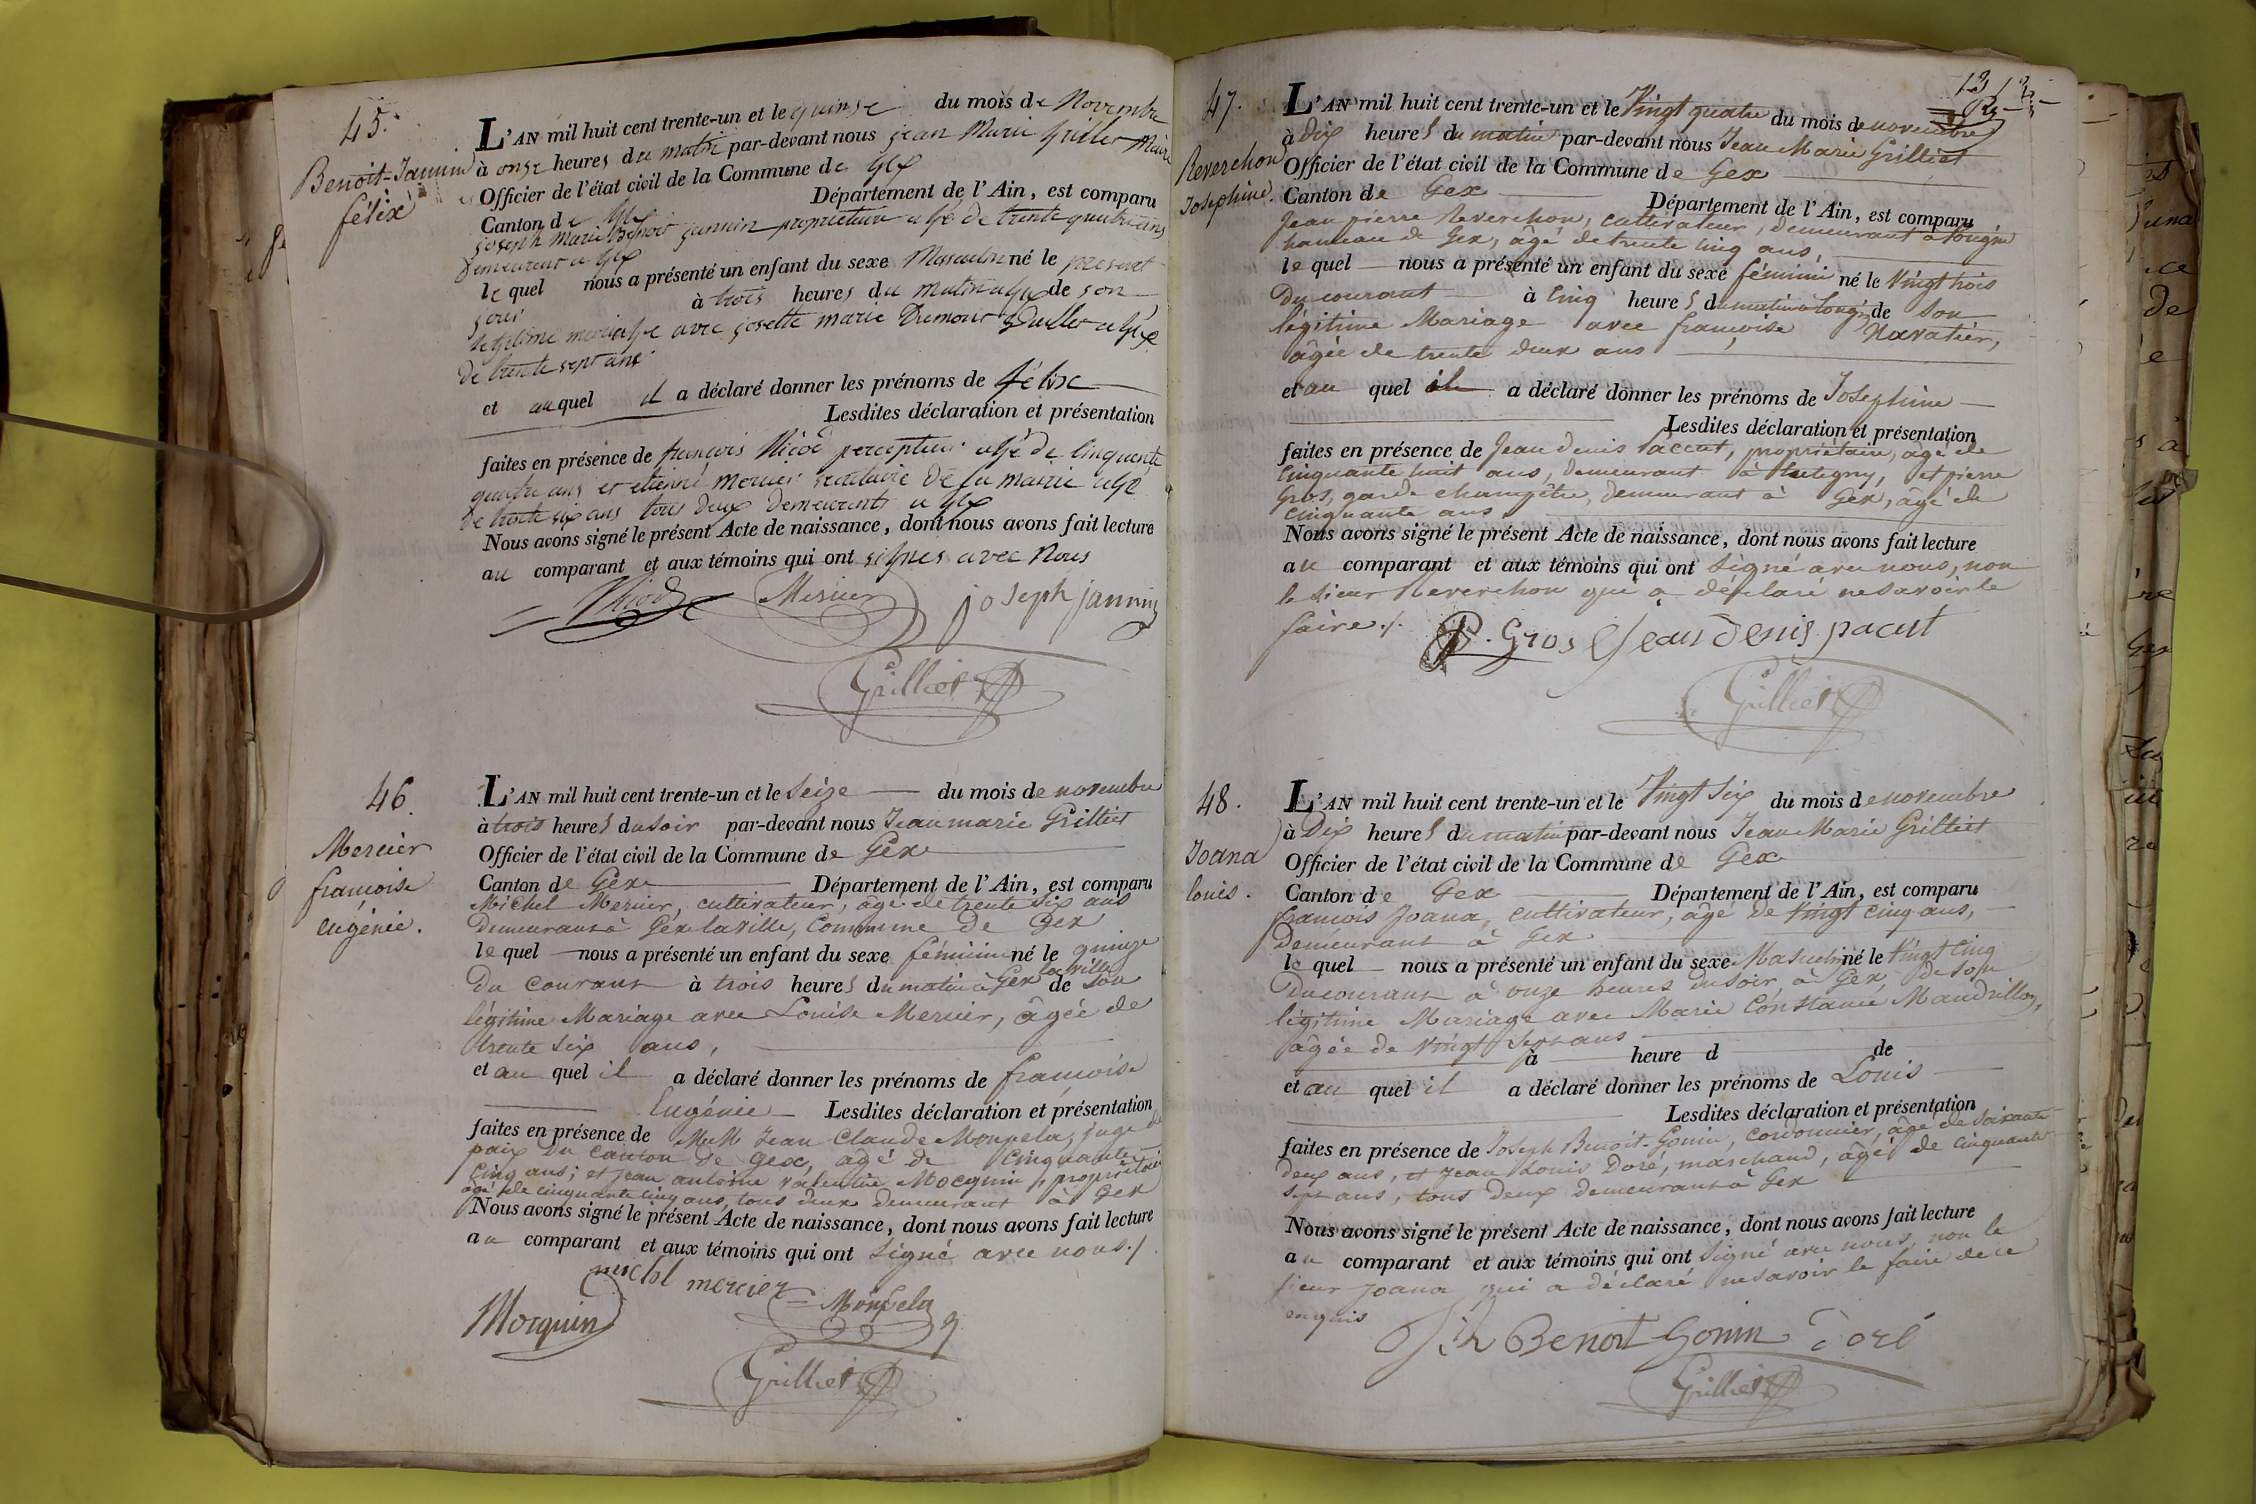 45.
Benoit-Jannin
félix
L'AN mil huit cent trente-un et le quinse du mois de Novembre
à onze heures du matin par-devant nous jean Marie Grilliet Maire
Officier de l'état civil de la Commune de Gex
Canton de Gex Département de l'Ain, est comparu
joseph Marie Benoit jannin propriétaire agé de trente quatre ans
demeurant a Gex
le quel nous a présenté un enfant du sexe Masculin né le present
jour à trois heures du matin a Gex de son
legitime mariage avec josette marie
de trente sept ans
et au quel il a déclaré donner les prénoms de félix
Lesdites déclaration et présentation
faites en présence de françois Nicod percepteur agé de cinquante
quatre ans et etienne Mercier secretaire de la mairie agé
de trente six ans tous deux demeurants a Gex
Nous avons signé le présent Acte de naissance, dont nous avons fait lecture
au comparant et aux témoins qui ont signes avec Nous
Nicod Mercier joseph jannin
Grilliet
46.
Mercier
françoise
eugénie.
L'AN mil huit cent trente-un et le Seize du mois de novembre
à trois heures du soir par-devant nous Jean marie Grilliet
Officier de l'état civil de la Commune de Gex
Canton de Gex Département de l'Ain, est comparu
Michel Mercier, cultivateur, âgé de trente six ans
Demeurant à Gex la ville, Commune de Gex
le quel nous a présenté un enfant du sexe féminin né le quinze
Du courant à trois heures du matin à Gex la ville de Son
légitime Mariage avec Louise Mercier, âgée de
trente six ans,
et au quel il a déclaré donner les prénoms de françoise
Eugénie Lesdites déclaration et présentation
faites en présence de MM Jean Claude Monpela, juge de
paix du canton de Gex, âgé de cinquante
cinq ans; et jean antoine valentin Mocquin, propriétaire
âgé de cinquante cinq ans, tous deux demeurant à Gex
Nous avons signé le présent Acte de naissance, dont nous avons fait lecture
au comparant et aux témoins qui ont Signé avec nous./.
michel mercier
Mocquin Monpela
Grilliet
1312
47.
Reverchon
Josephine.
L'AN mil huit cent trente-un et le Vingt quatre du mois de novembre
à dix heures du matin par-devant nous Jean Marie Grilliet
Officier de l'état civil de la Commune de Gex
Canton de Gex Département de l'Ain, est comparu
Jean pierre Reverchon, cultivateur, demeurant à
hameau de Gex, âgé de trente cinq ans,
le quel nous a présenté un enfant du sexe féminin né le Vingt trois
Du courant à Cinq heures du matin à de Son
légitime Mariage avec françoise Navatier,
âgée de trente deux ans
et au quel il a déclaré donner les prénoms de Josephine
Lesdites déclaration et présentation
faites en présence de Jean denis Paccut, propriétaire, âgé de
Cinquante huit ans, demeurant à et pierre
Gros, garde champêtre, demeurant à Gex, âgé de
cinquante ans
Nous avons signé le présent Acte de naissance, dont nous avons fait lecture
au comparant et aux témoins qui ont Signé avec nous, non
le Sieur Reverchon qui a déclaré ne savoir le
faire./.
P. Gros Jean denis pacut
Grilliet
48.
Joana
louis.
L'AN mil huit cent trente-un et le Vingt Six du mois de novembre
à Dix heures du matin par-devant nous Jean Marie Grilliet
Officier de l'état civil de la Commune de Gex
Canton de Gex Département de l'Ain, est comparu
françois Joana, Cultivateur, âgé de Vingt cinq ans,
Demeurant à Gex
le quel nous a présenté un enfant du sexe Masculin né le Vingt Cinq
Du courant à onze heures du Soir, à Gex de Son
légitime Mariage avec Marie Constance Mandrillon,
âgée de Vingt Sept ans
à heure d de
et au quel il a déclaré donner les prénoms de Louis
Lesdites déclaration et présentation
faites en présence de Joseph Benoit-Gonin, cordonnier, âgé de Soixante
deux ans, et Jean Louis Doré, marchand, âgé de cinquante
Sept ans, tous deux demeurant à Gex
Nous avons signé le présent Acte de naissance, dont nous avons fait lecture
au comparant et aux témoins qui ont Signé avec nous, non le
Sieur Joana qui a déclaré ne savoir le faire de ce
enquis
Jh Benoit Gonin Doré
Grilliet